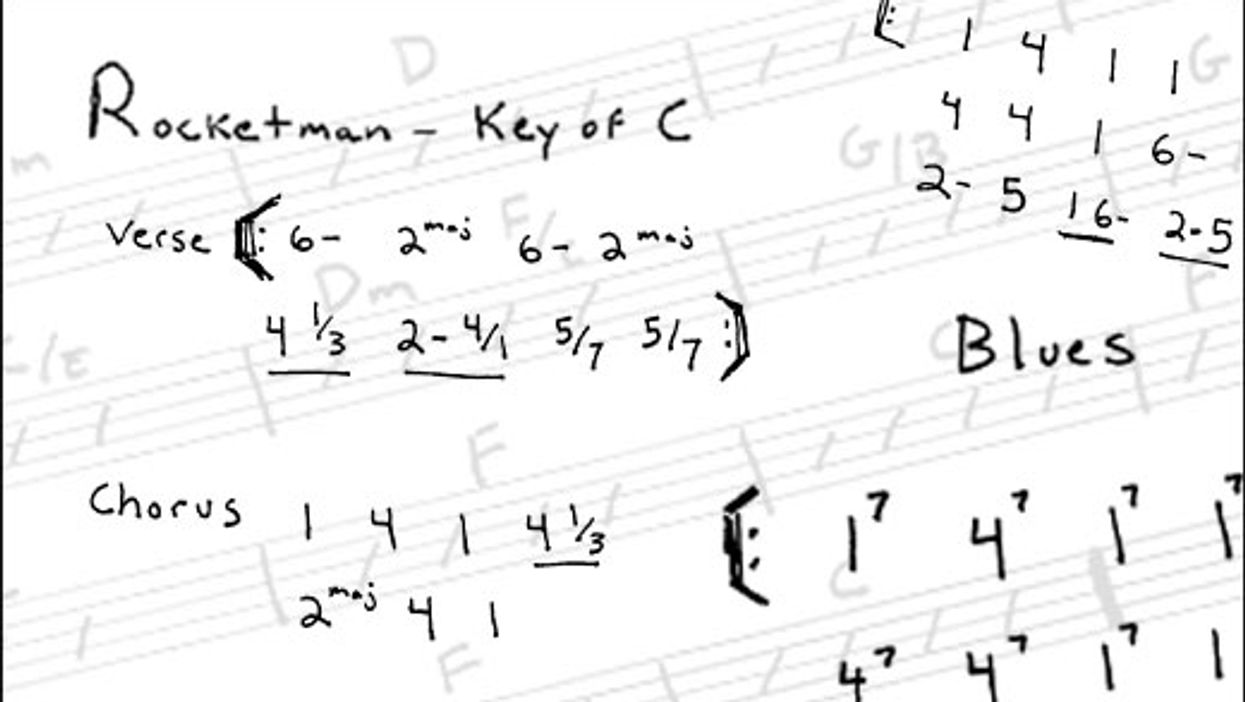 Rocketman - Key of C
Verse 6- 2maj 6- 2maj
4 1/3 2- 4/1 5/7 5/7
Chorus 1 4 1 4 1/3
2maj 4 1
1 4 1 1
4 4 1 6-
2- 5 1 6- 2-5
Blues
1⁷ 4⁷ 1⁷ 1⁷
4⁷ 4⁷ 1⁷ 1
D
G
m
G/B
F/C
Dm
F
-/E
C
F
C
F